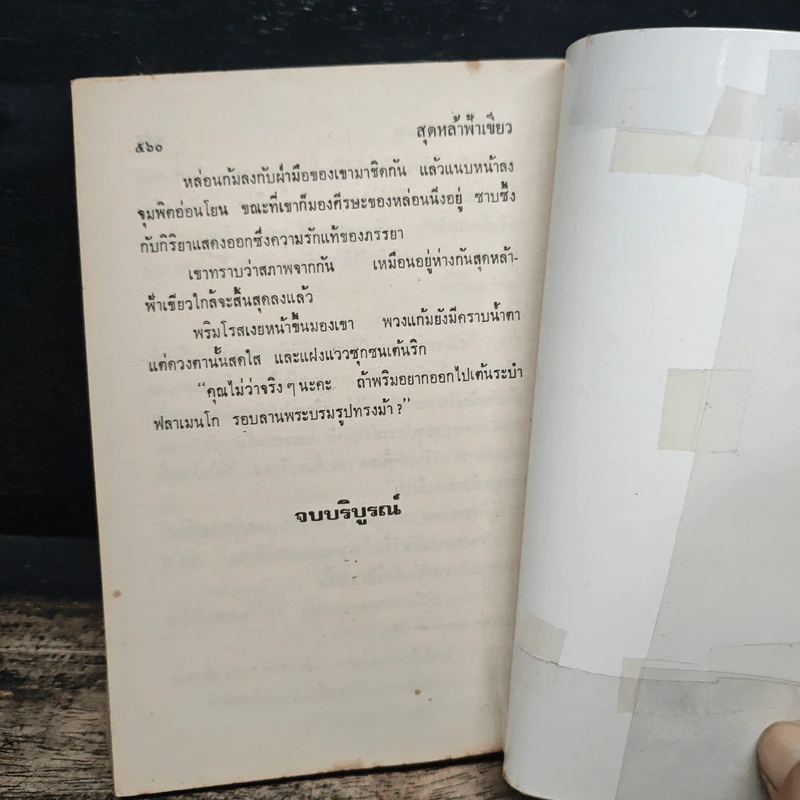 สุดหล้าฟ้าเขียว
๕๖๐
หล่อนก้มลงกับฝ่ามือของเขามาชิดกัน แล้วแนบหน้าลง
จุมพิตอ่อนโยน ขณะที่เขาก็มองศีรษะของหล่อนนิ่งอยู่ ซาบซึ้ง
กับกิริยาแสดงออกซึ่งความรักแท้ของภรรยา
เขาทราบว่าสภาพจากกัน เหมือนอยู่ห่างกันสุดหล้า-
ฟ้าเขียวใกล้จะสิ้นสุดลงแล้ว
พริมโรสเงยหน้าขึ้นมองเขา พวงแก้มยังมีคราบน้ำตา
แต่ดวงตานั้นสดใส และแฝงแววซุกซนเต้นริก
“คุณไม่ว่าจริง ๆ นะคะ ถ้าพริมอยากออกไปเต้นระบำ
ฟลาเมนโก รอบลานพระบรมรูปทรงม้า ?”
จบบริบูรณ์